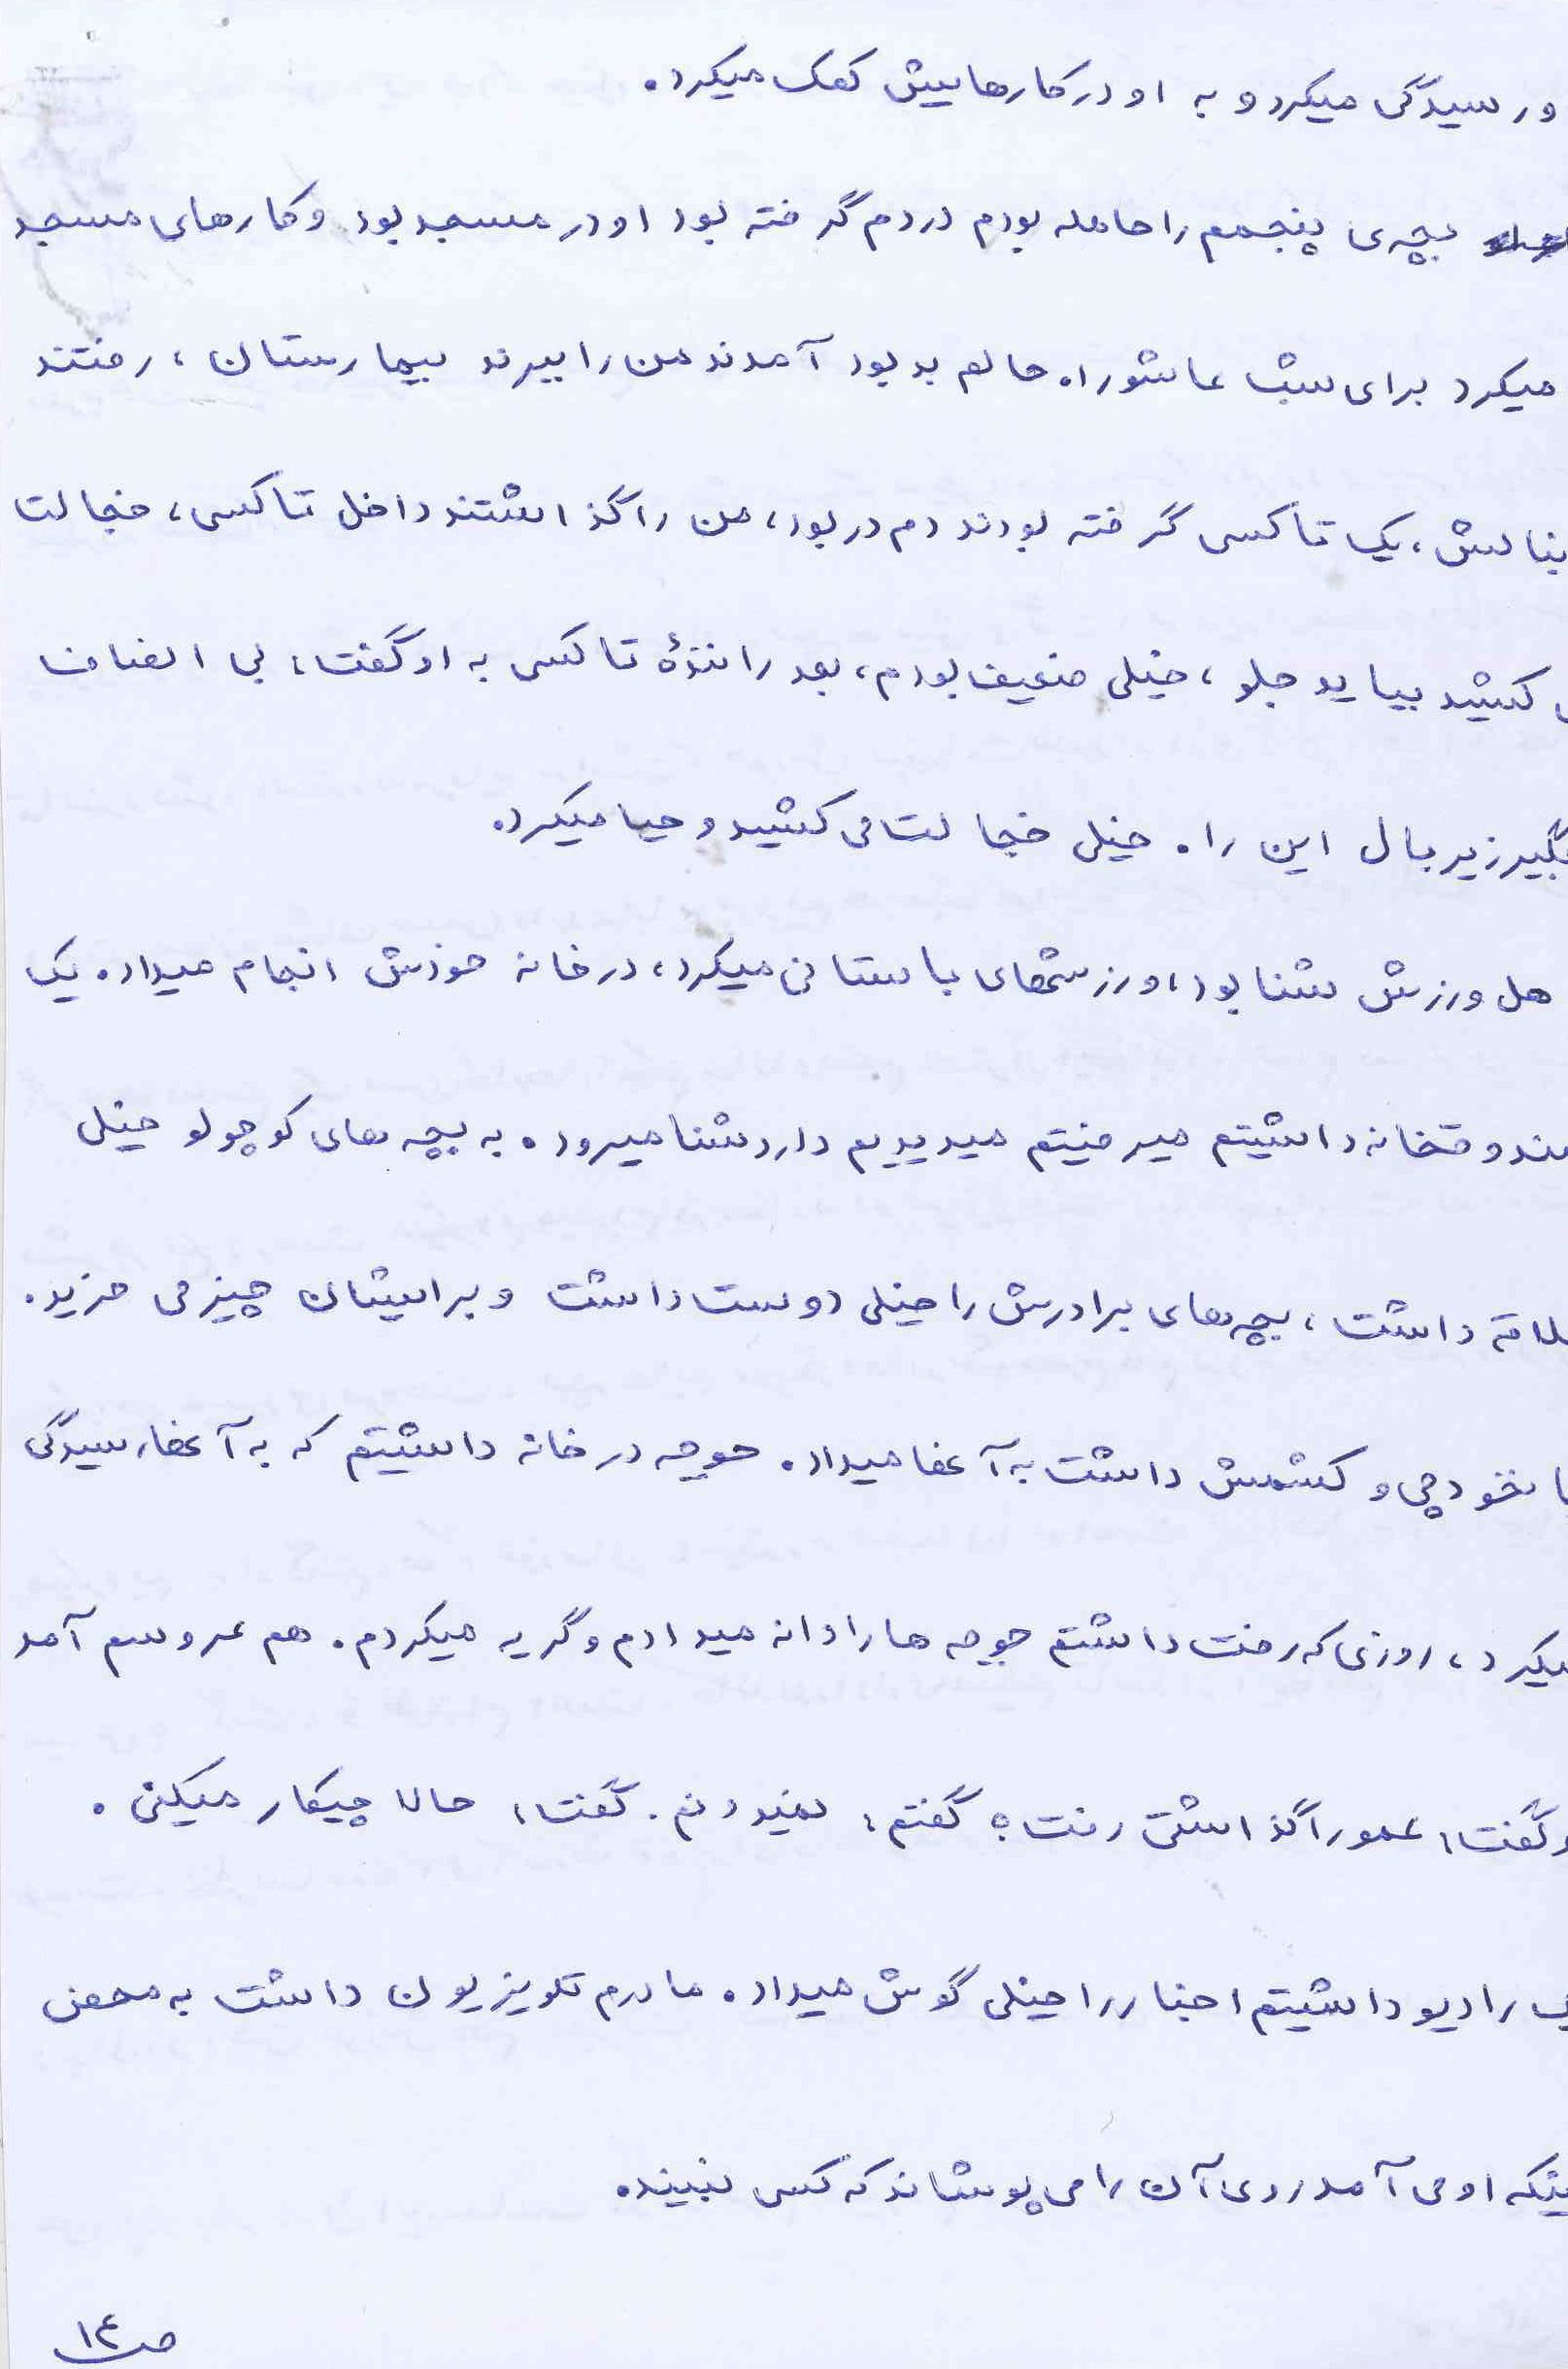 و رسیدگی میکرد و به او در کارهاییش کمک میکرد.
بچه‌ی پنجمم را حامله بودم دردم گرفته بود او در مسجد بود و کارهای مسجد
میکرد برای شب عاشورا. حالم بد بود آمدند من را ببرند بیمارستان، رفتند
بنالش، یک تاکسی گرفته بودند دم در بود، من را گذاشتند داخل تاکسی، خجالت
کشید بیاید جلو، خیلی ضعیف بودم، بعد رانندۀ تاکسی به او گفت، بی انصاف
بگیر زیر بال این را. خیلی خجالت می کشید و حیا میکرد.
هل ورزش شنا بود، ورزشهای باستانی میکرد، در خانه خودش انجام میداد. یک
ندوقخانه داشتیم میرفتیم میدیدیم دارد شنا میرود. به بچه های کوچولو خیلی
لاقه داشت، بچه‌های برادرش را خیلی دوست داشت و برایشان چیز می خرید.
نخودچی و کشمش داشت به آنها میداد. جوجه در خانه داشتیم که به آنها رسیدگی
میکرد، روزی که رفت داشتم جوجه ها را دانه میدادم و گریه میکردم. هم عروسم آمد
و گفت، عمو را گذاشتی رفت؟ گفتم، نمیدونم. گفت، حالا چیکار میکنی.
رادیو داشتیم اخبار را خیلی گوش میداد. مادرم تلویزیون داشت به محض
ینکه او می آمد روی آن را می پوشاند که کسی نبیند.
ص ١٤